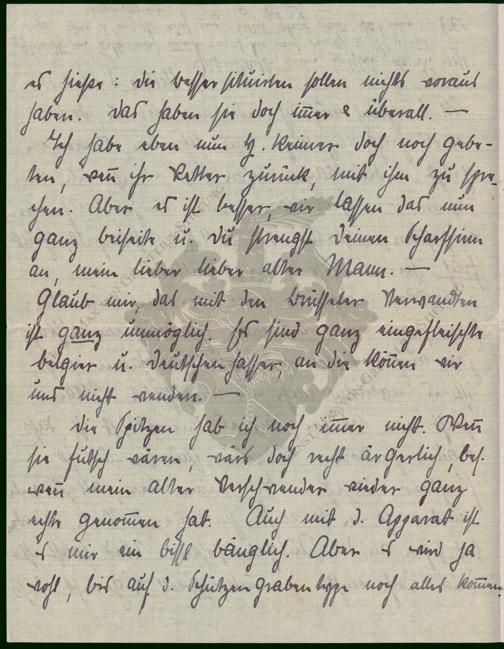 es hieße: die besser situirten sollen nichts voraus
haben. Das haben sie doch im̅er & überall. —
Ich habe eben nun H. Reiner doch noch gebe-
ten, wen̅ ihr Vetter zurück, mit ihm zu spre-
chen. Aber es ist besser, wir lassen das nun
ganz beiseite u. Du strengst Deinen Scharfsinn
an, mein lieber lieber alter Mann. —
Glaub mir, das mit den Brüsseler Verwandten
ist ganz unmöglich. Es sind ganz eingefleischte
belgier u. Deutschenhasser an die kön̅en wir
uns nicht wenden. —
Die Spitzen hab ich noch im̅er nicht. Wen̅
sie futsch wären, wärs doch recht ärgerlich, bes.
wen̅ mein alter Verschwender wieder ganz
echte genom̅en hat. Auch mit d. Apparat ist
es mir ein bissl bänglich. Aber es wird ja
wohl, bis auf d. Schützengrabentype noch alles kom̅en.